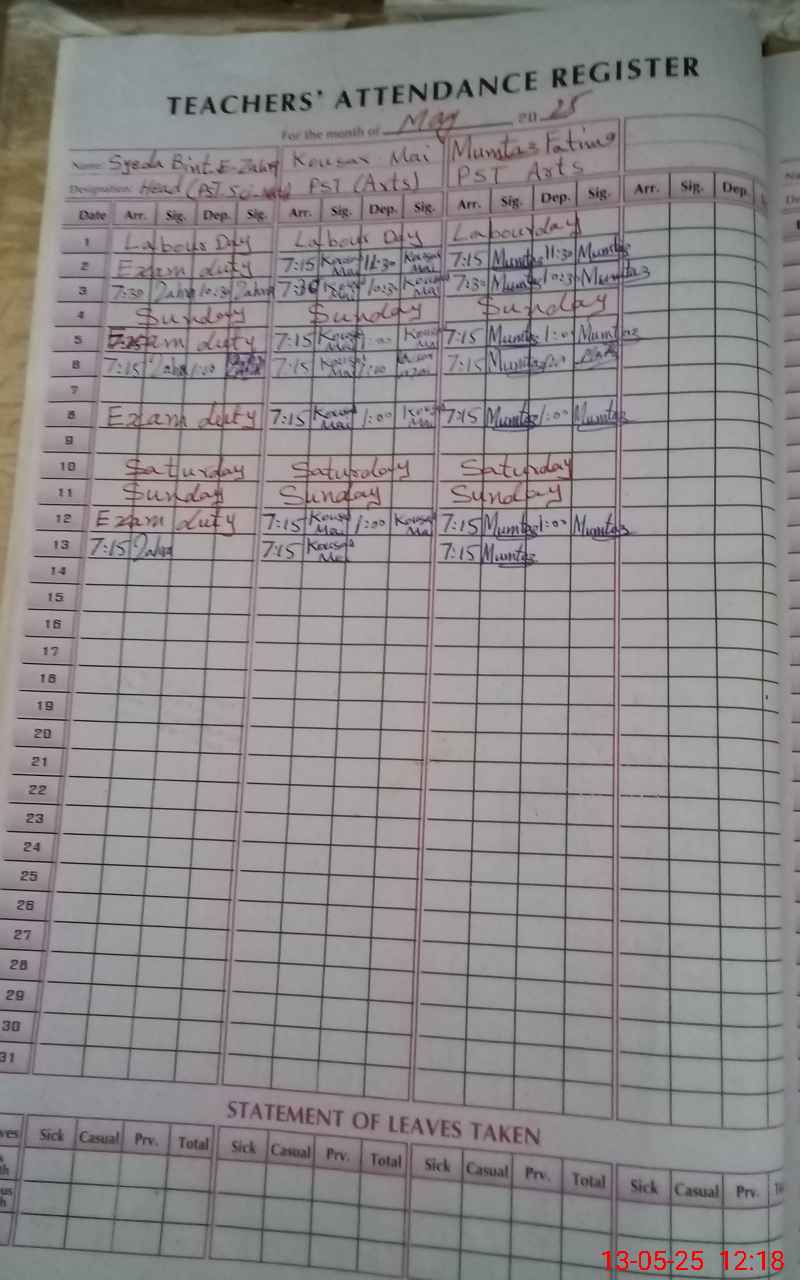 TEACHERS' ATTENDANCE REGISTER
For the month of May 2025
Name: Syeda Bint E-Zahra Kousar Mai Mumtas Fatima
Designation: Head (PST PST (Arts) PST Arts
Date Arr. Sig. Dep. Sig. Arr. Sig. Dep. Sig. Arr. Sig. Dep. Sig. Arr. Sig. Dep.
1 Labour Day Labour Day Labourday
2 Exam duty 7:15 Kousar Mai 11:30 Kousar Mai 7:15 Mumtas 11:30 Mumtas
3 7:30 Zahra 10:30 Zahra 7:30 Kousar Mai 10:30 Kousar Mai 7:30 Mumtas 10:30 Mumtas
4 Sunday Sunday Sunday
5 Exam duty 7:15 Kousar Mai 1:00 Kousar Mai 7:15 Mumtas 1:00 Mumtas
6 7:15 Zahra 1:00 7:15 Kousar Mai 1:00 7:15 Mumtas
7
8 Exam duty 7:15 Kousar Mai 1:00 Kousar Mai 7:15 Mumtas 1:00 Mumtas
9
10 Saturday Saturday Saturday
11 Sunday Sunday Sunday
12 Exam duty 7:15 Kousar Mai 1:00 Kousar 7:15 Mumtas 1:00 Mumtas
13 7:15 Zahra 7:15 Kousar Mai 7:15 Mumtas
14
15
16
17
18
19
20
21
22
23
24
25
26
27
28
29
30
31
STATEMENT OF LEAVES TAKEN
Sick Casual Prv. Total Sick Casual Prv. Total Sick Casual Prv. Total Sick Casual Prv.
13-05-25 12:18